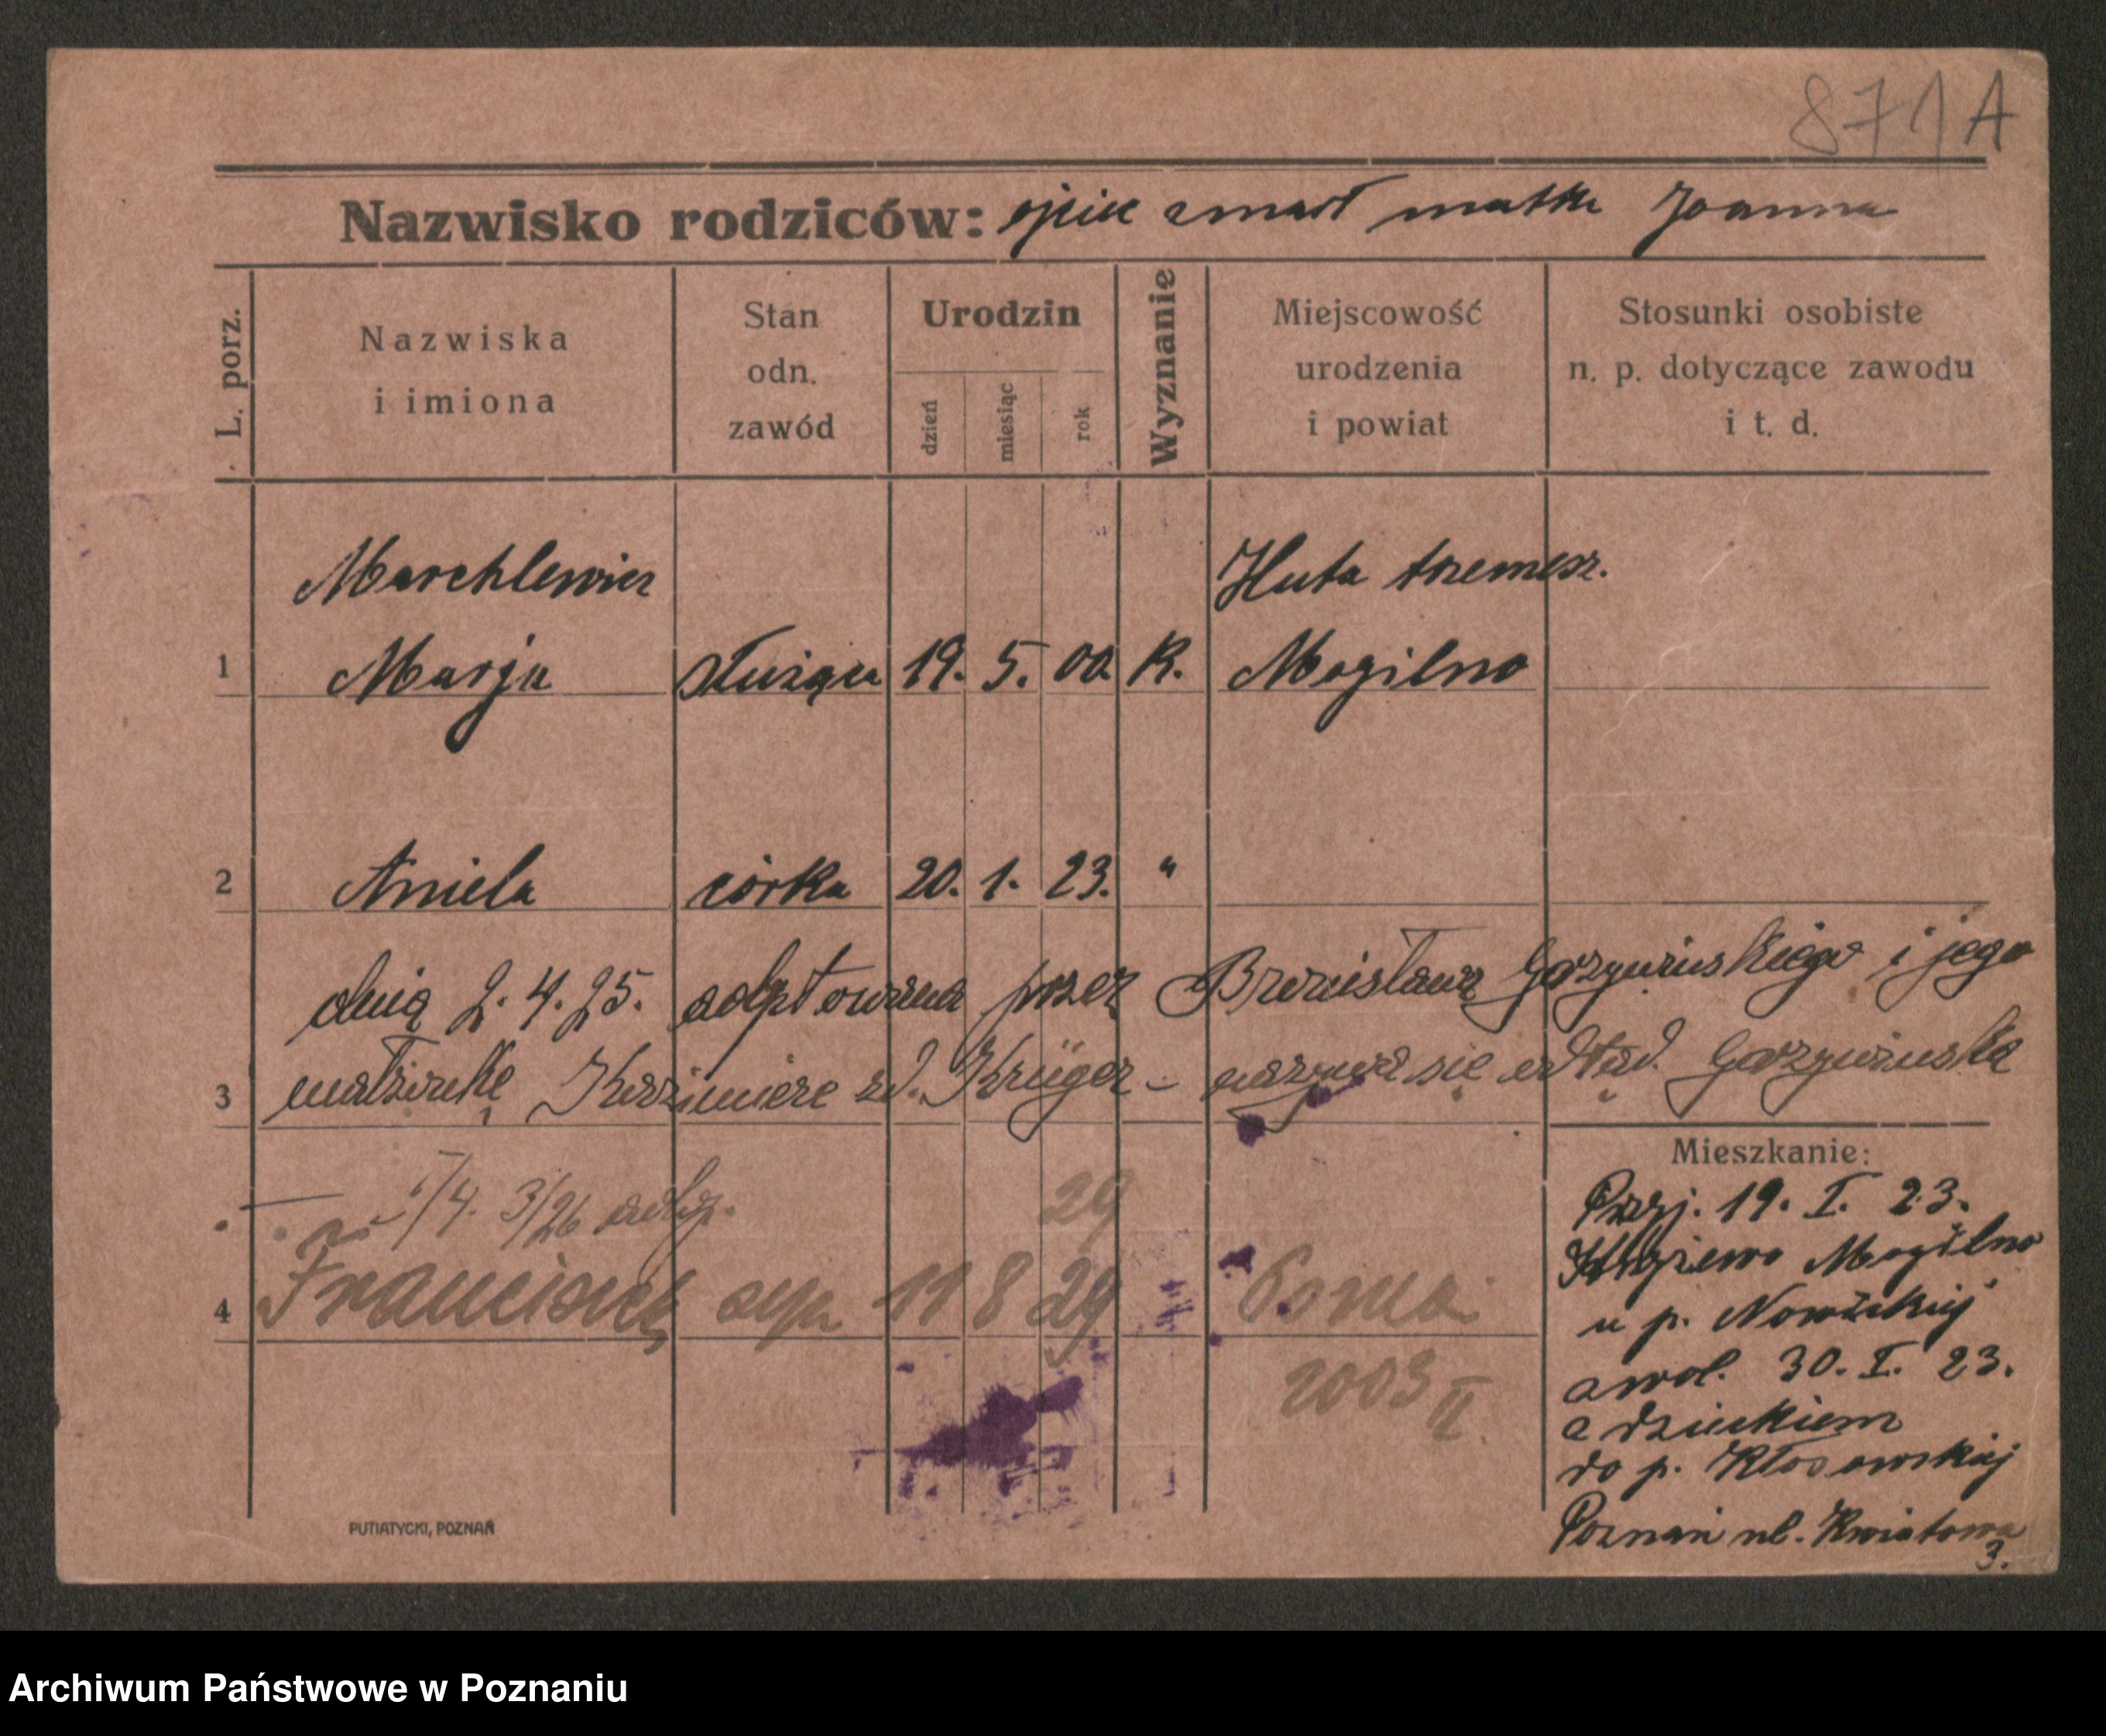 871A
Nazwisko rodziców: ojciec zmarł matka Joanna
L. porz.
Nazwiska
i imiona
Stan
odn.
zawód
Urodzin
dzień
miesiąc
rok
Wyznanie
Miejscowość
urodzenia
i powiat
Stosunki osobiste
n. p. dotyczące zawodu
i t. d.
Marchlewicz Huta trzemesz.
1 Marja służąca 19. 5. 00. K. Mogilno
2 Aniela córka 20. 1. 23. "
dnia 2. 4. 25. adoptowana przez Bronisława Gorzywińskiego i jego
3 małżonkę Kazimierę zd. Krüger – nazywa się odtąd. Gorzywińska
4. 3/26 29
4 Franciszek syn 11 8 29
2003 II
Mieszkanie:
Przyj. 19. I. 23.
Mogilno
u p. Nowickiej
zwol. 30. I. 23.
z dzieckiem
do p. Kłosowskiej
Poznań ul. Kwiatowa
3.
PUTIATYCKI, POZNAŃ
Archiwum Państwowe w Poznaniu